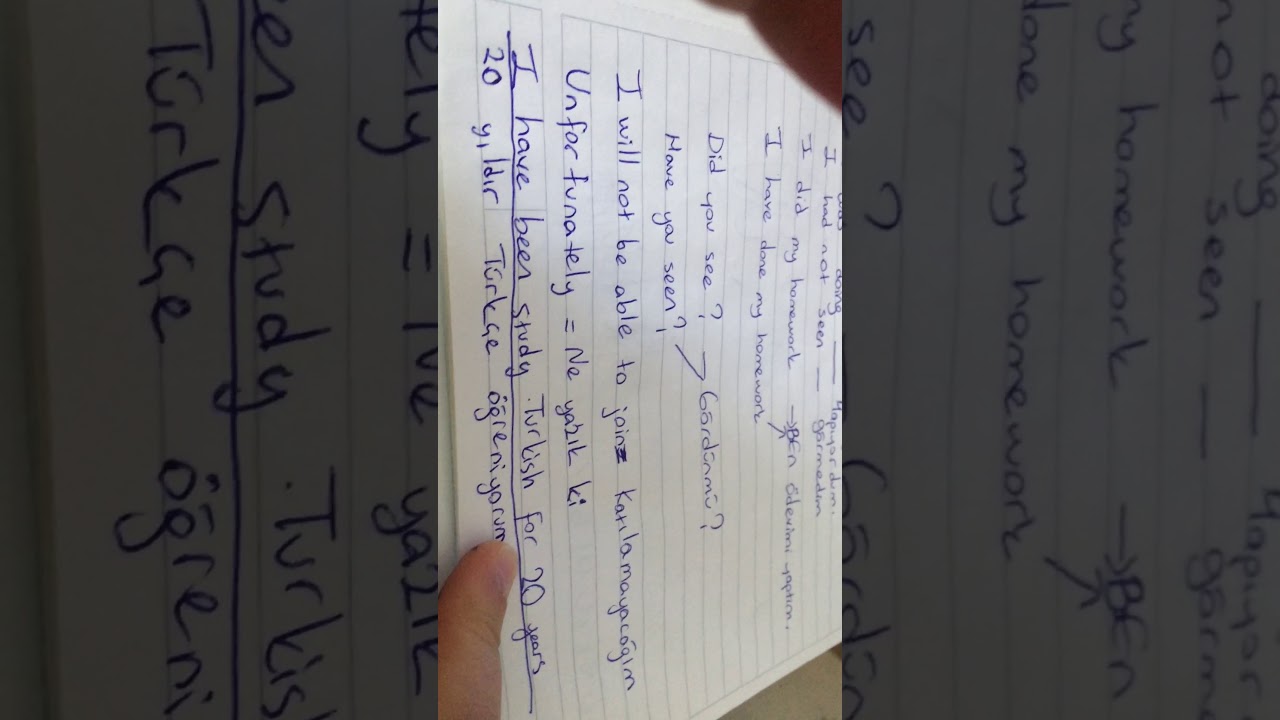 doing yapıyordum.
I had not seen — görmedim
I did my homework → BEn ödevimi yaptım.
I have done my homework
Did you see? Gördünmü?
Have you seen?
I will not be able to join = Katılamayacağım
Unfortunately = Ne yazık ki
I have been study Turkish for 20 years
20 yıldır Türkçe öğreniyorum